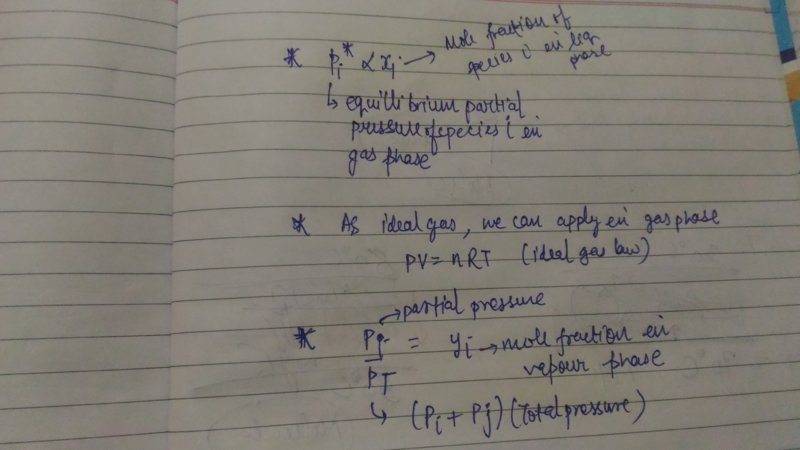 * Pi* ∝ xi → Mole fraction of
species i en liq
phase
↳ equillibrium partial
pressure of species i en
gas phase
* As ideal gas, we can apply en gas phase
PV = nRT (ideal gas law)
→ partial pressure
* Pi/PT = yi → mole fraction en
vapour phase
↳ (Pi + Pj) (Total pressure)